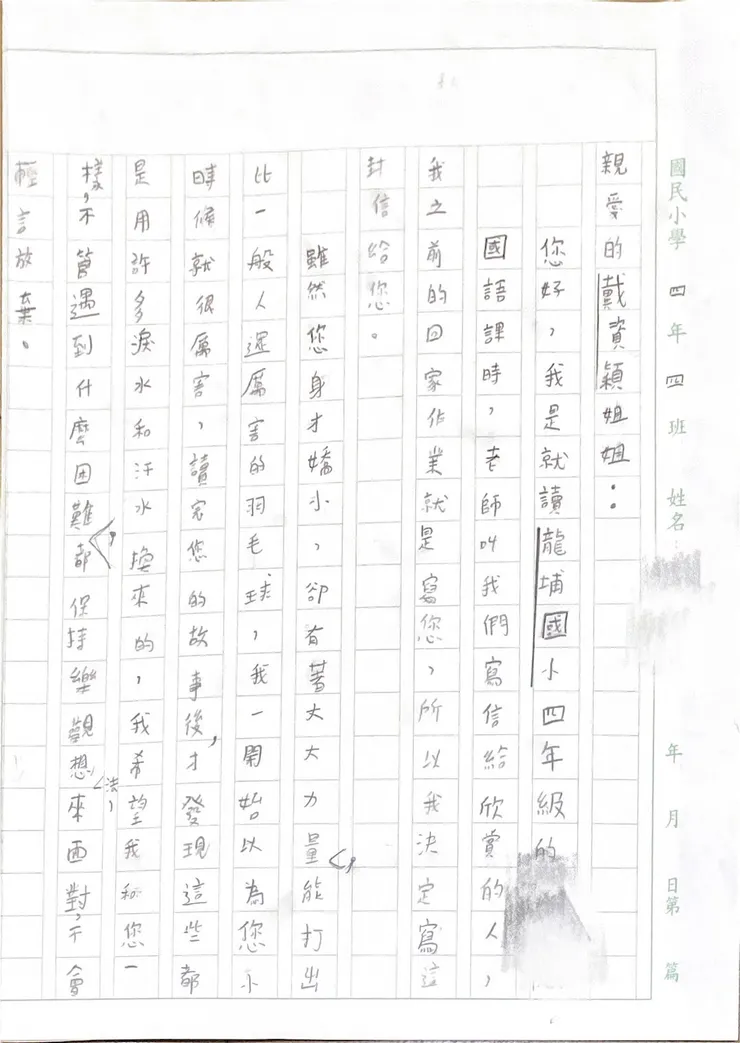 國民小學 四年 四班 姓名: 年 月 日第 篇
親愛的戴資穎姐姐：
您好，我是就讀龍埔國小四年級的
國語課時，老師叫我們寫信給欣賞的人，
我之前的回家作業就是寫您，所以我決定寫這
封信給您。
雖然您身才嬌小，卻有著大大力量，能打出
比一般人還厲害的羽毛球，我一開始以為您小
時候就很厲害，讀完您的故事後，才發現這些都
是用許多淚水和汗水換來的，我希望我和您一
樣，不管遇到什麼困難，都保持樂觀想法，來面對，不會
輕言放棄。